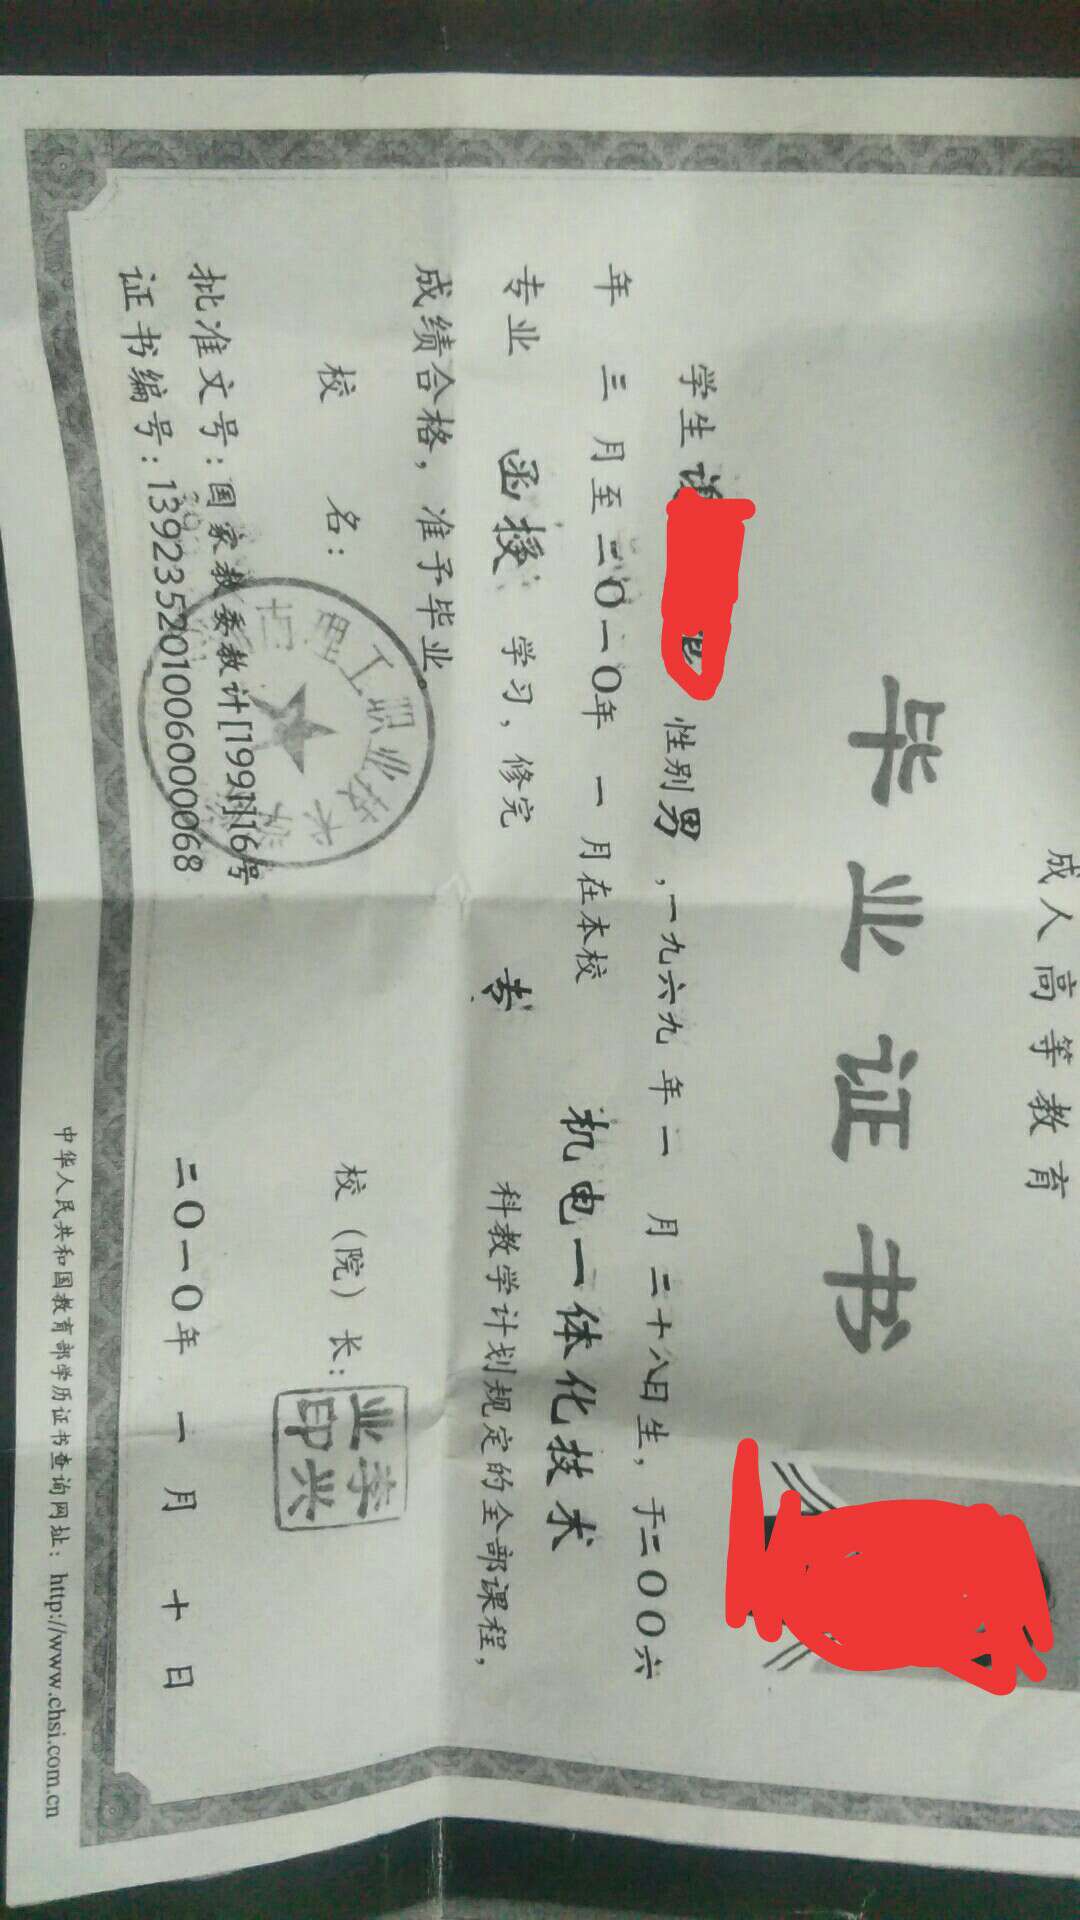 成人高等教育
毕业证书
学生 性别男,一九六九年一月二十八日生,于二〇〇六
年三月至二〇一〇年一月在本校 机电一体化技术
专业 函授 学习,修完 专 科教学计划规定的全部课程,
成绩合格,准予毕业。
校名: 校(院)长:
理工职业技术
业李
印兴
批准文号:国家教委教计[1991]16号
证书编号:139235201006000068
二〇一〇年一月十日
中华人民共和国教育部学历证书查询网址:http://www.chsi.com.cn